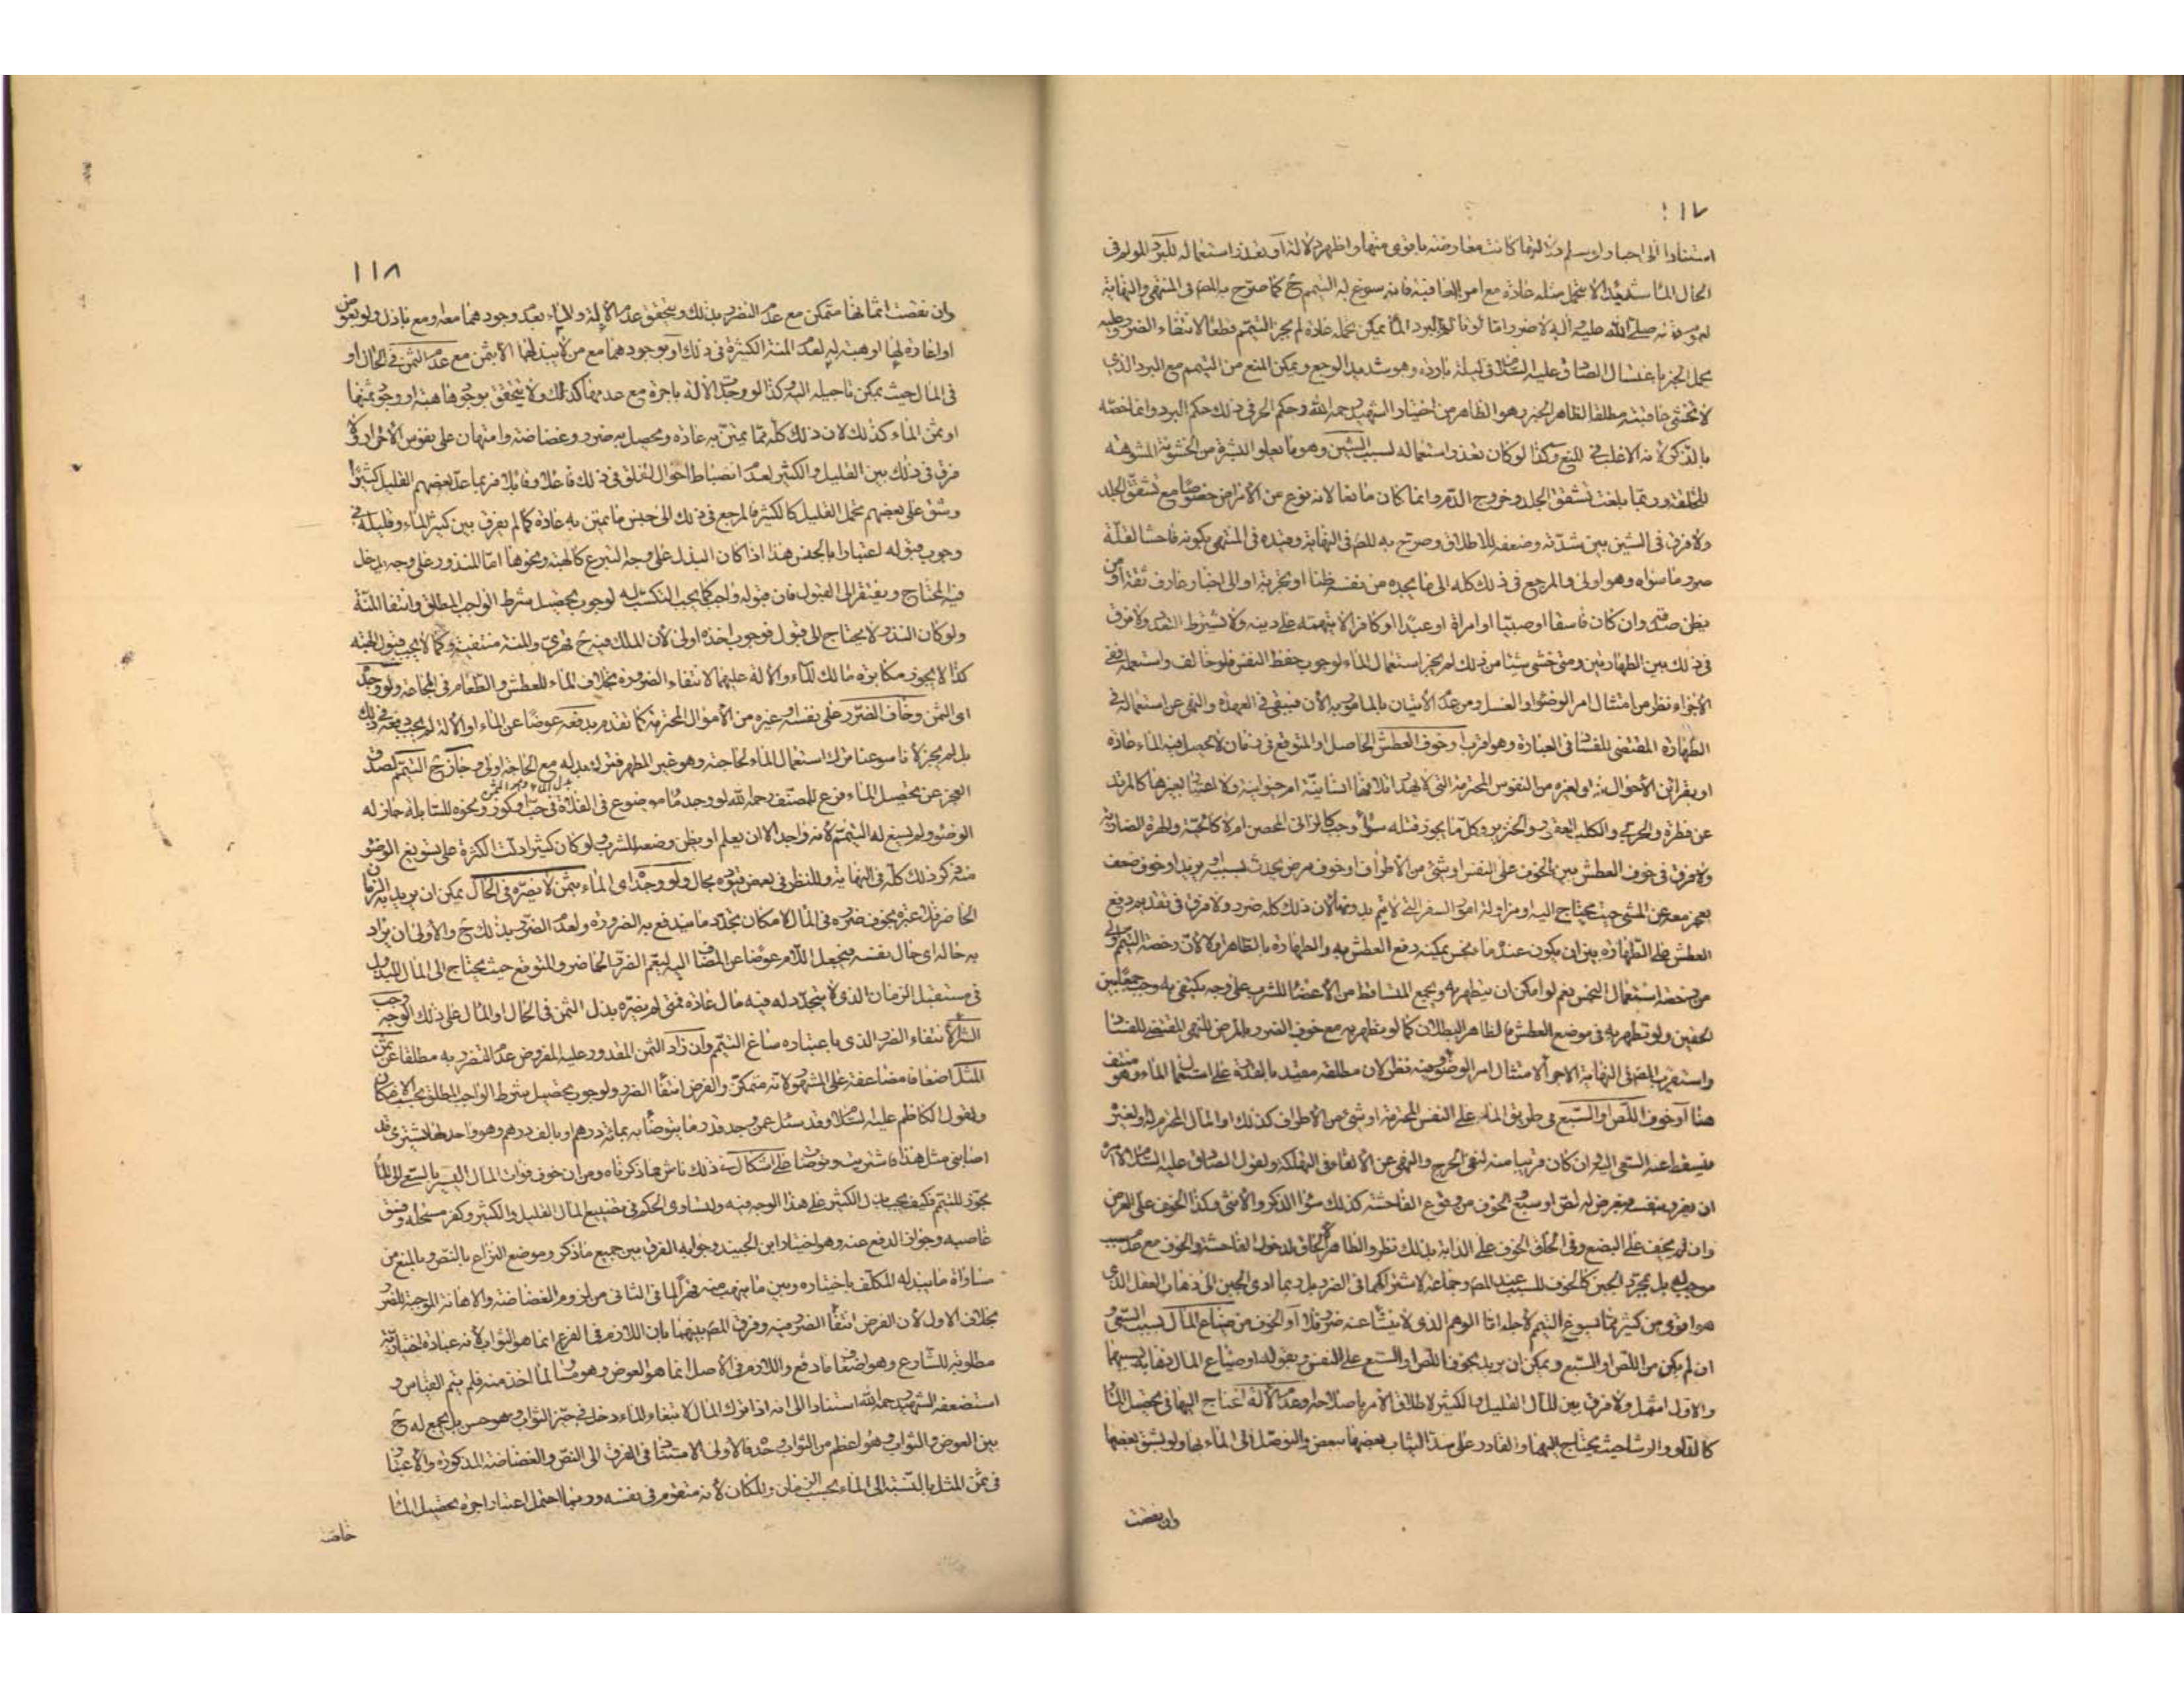 ١١٧
استنادا الى اخبار لو سلم دلالتها كانت معارضة باقوى منها واظهر دلالة او تعذر استعماله للبرد المولم في
الحال الما شديدا لا يتحمل مثله عادة مع امن العاقبة فانه يسوغ له التيمم ح كما صرح به المص في المنتهى والنهاية
لعموم قوله صلى الله عليه وآله لا ضرر اما لو تألم بالبرد الما يمكن تحمله عادة لم يجز التيمم قطعا لانتفاء الضرر وعليه
يحمل الخبر باغتسال الصادق عليه السلام في ليلة باردة وهو شديد الوجع ويمكن المنع من التيمم مع البرد الذي
لا تخشى عاقبته مطلقا لظاهر الخبر وهو الظاهر من اختيار الشهيد رحمه الله وحكم الحر في ذلك حكم البرد وانما خصه
بالذكر لانه الاغلب في المنع وكذا لو كان تعذر استعماله لسبب الشين وهو ما يعلو البشرة من الخشونة المشوهة
للخلقة وربما بلغت تشقق الجلد وخروج الدم وانما كان مانعا لانه نوع من الأمراض خصوصا مع تشقق الجلد
ولا فرق في الشين بين شدته وضعفه للاطلاق وصرح به المص في النهاية وقيده في المنتهى بكونه فاحشا لقلة
ضرر ما سواه وهو اولى والمرجع في ذلك كله الى ما يجده من نفسه ظنا او تجربة او الى اخبار عارف ثقة او من
يظن صدقه وان كان فاسقا او صبيا او امراة او عبدا او كافرا لا يتهمه على دينه ولا يشترط التعدد ولا فرق
في ذلك بين الطهارتين ومتى خشي شيئا من ذلك لم يجز استعمال الماء لوجوب حفظ النفس فلو خالف واستعمله ففي
الأجزاء نظر من امتثال امر الوضوء او الغسل ومن عدم الاتيان بالمامور به الأن فيبقى في العهدة والنهي عن استعماله في
الطهارة المقتضي للفساد في العبادة وهو اقرب او خوف العطش الحاصل او المتوقع في زمان لا يحصل فيه الماء عادة
او بقرائن الأحوال له او لغيره من النفوس المحترمة التي لا يهدر اتلافها انسانية ام حيوانية ولا اعتبار بغيرها كالمرتد
عن فطرة والحربي والكلب العقور والخنزير وكل ما يجوز قتله سواء وجب كالزاني المحصن ام لا كالحية والهرة الضارية
ولا فرق في خوف العطش بين الخوف على النفس او شيء من الأطراف او خوف مرض يحدث بسببه او يزيد او خوف ضعف
يعجز معه عن المشي حيث يحتاج اليه او مزاولة امور السفر التي لا يتم بدونها لأن ذلك كله ضرر ولا فرق في تقديم دفع
العطش على الطهارة بين ان يكون عنده ماء نجس يمكنه دفع العطش به والطهارة بالطاهر او لا لأن رخصة التيمم اولى
من رخصة استعمال النجس نعم لو امكن ان يتطهر به ويجمع المتساقط من الأعضاء للشرب على وجه يكتفي به وجب جمعا بين
الحقين ولو تطهر به في موضع العطش فالظاهر البطلان كما لو تطهر به مع خوف الضرر بالمرض للنهي المقتضي للفساد
واستقرب المص في النهاية الاجزاء لامتثال امر الوضوء وفيه نظر لان مطلقه مقيد بالقدرة على استعمال الماء وهو منتف
هنا او خوف اللص او السبع في طريق الماء على النفس المحترمة او شيء من الاطراف كذلك او المال المحترم له او لغيره
فيسقط عنه السعي اليه وان كان قريبا منه لنفي الحرج والنهي عن الالقاء في التهلكة ولقول الصادق عليه السلام لا آمره
ان يغرر بنفسه فيعرض له لص او سبع والخوف من وقوع الفاحشة كذلك سواء الذكر والأنثى وكذا الخوف على العرض
وان لم يخف على البضع وفي الحاق الخوف على الدابة بذلك نظر والظاهر الحاق لدخول الفاحشة والخوف مع عدم سبب
موجب له بل بمجرد الجبن كالخوف للسبب عند المص وجماعة لاشتراكهما في الضرر بل ربما ادى الجبن الى ذهاب العقل الذي
هو اقوى من كثير مما يسوغ التيمم لأجله اما الوهم الذي لا ينشأ عنه ضرر فلا او الخوف من ضياع المال بسبب السعي
ان لم يكن من اللص او السبع ويمكن ان يريد بخوف اللص او السبع على النفس وبقوله او ضياع المال ذهابه بسببهما
والاول اشمل ولا فرق بين المال القليل والكثير لاطلاق الأمر باصلاحه وعدم الآلة المحتاج اليها في تحصيل الماء
كالدلو والرشا حيث يحتاج اليهما والقادر على شد الثياب بعضها ببعض والتوصل الى الماء بها ولو بشق بعضها
وان نقصت
١١٨
وان نقصت اثمانها متمكن مع عدم التضرر بذلك ويتحقق عدم الآلة والماء بعدم وجودهما معه ومع باذل ولو بعوض
او اعارة لها او هبة له لعدم المنة الكثيرة في ذلك او بوجودهما مع من لا يبذلهما الا بثمن مع عدم الثمن في الحال او
في المال حيث يمكن تاجيله اليه وكذا لو وجد الالة باجرة مع عدمها كذلك ولا يتحقق بوجودها هبة او وجود ثمنها
او ثمن الماء كذلك لان ذلك كله مما يمتن به عادة ويحصل به ضرر وغضاضة وامتهان على نفوس الأحرار ولا
فرق في ذلك بين القليل والكثير لعدم انضباط احوال الخلق في ذلك فاعلا وقابلا فربما عد بعضهم القليل كثيرا
وشق على بعضهم تحمل القليل كالكثير فالمرجع في ذلك الى جنس ما يمتن به عادة كما لم يفرق بين كثير الماء وقليله في
وجوب قبوله اعتبارا بالجنس هذا اذا كان البذل على وجه التبرع كالهبة ونحوها اما المنذور على وجه يدخل
فيه المحتاج ويفتقر الى القبول فان قبوله واجب كما يجب التكسب له لوجوب تحصيل شرط الواجب المطلق وانتفاء المنة
ولو كان النذر لا يحتاج الى قبول فوجوب اخذه اولى لأن الملك فيه ح قهري والمنة منتفية وكما لا يجب قبول الهبة
كذا لا يجوز مكابرة مالك الماء والآلة عليهما لانتفاء الضرورة بخلاف الماء للعطش والطعام في المجاعة ولو وجده
اى الثمن وخاف الضرر على نفسه او غيره من الأموال المحترمة كما تقدم بدفعه عوضا عن الماء او الآلة لم يجب دفعه في ذلك
بل لم يجز لأنا سوغنا ترك استعمال الماء لحاجته وهو غير المطهر فترك بدله مع الحاجة اولى وجاز ح التيمم لصدق
العجز عن تحصيل الماء فرع للمصنف رحمه الله لو وجد ماء موضوع في الفلاة في حب او كوز ونحوه للسابلة جاز له
الوضوء ولم يسغ له التيمم لأنه واجد الا ان يعلم او يظن وضعه للشرب ولو كان كثيرا دلت الكثرة على تسويغ الوضوء
منه ذكر ذلك كله في النهاية وللنظر في بعض قيوده مجال ولو وجده اى الماء بثمن لا يضره في الحال يمكن ان يريد به الزمان
الحاضر فلا عبرة بخوف ضرره في المال لامكان تجدد ما يندفع به الضرورة ولعدم الضرر بذلك ح والأولى ان يراد
به حاله اى حال نفسه فيجعل اللام عوضا عن المضاف اليه ليعم الضرر الحاضر والمتوقع حيث يحتاج الى المال المبذول
في مستقبل الزمان الذي لا يتجدد له فيه مال عادة فمتى لم يضره بذل الثمن في الحال او المال على ذلك الوجه وجب
الشراء لانتفاء الضرر الذي باعتباره ساغ التيمم وان زاد الثمن المقدور عليه المفروض عدم التضرر به مطلقا عن ثمن
المثل اضعافا مضاعفة على المشهور لانه متمكن والفرض انتفاء الضرر ولوجوب تحصيل شرط الواجب المطلق بحسب الامكان
ولقول الكاظم عليه السلام وقد سئل عمن وجد قدر ما يتوضأ به بمائة درهم او بالف درهم وهو واجد لها يشتري قد
اصابني مثل هذا فاشتريت وتوضأت على اشكال في ذلك ناش مما ذكرناه ومن ان خوف فوات المال اليسير بالسعي الى الماء
مجوز للتيمم فكيف يجب بذل الكثير على هذا الوجه فيه ولتساوى الحكم في تضييع المال القليل والكثير وكفر مستحله وفسق
غاصبه وجواز الدفع عنه وهو اختيار ابن الجنيد وجوابه الفرق بين جميع ما ذكر وموضع النزاع بالنص وبالمنع من
مساواة ما يبذله المكلف باختياره وبين ما ينهب منه قهرا لما في الثاني من لزوم الغضاضة والاهانة الموجبة للضرر
بخلاف الاول لأن الفرض انتفاء الضرر فيه وفرق المص بينهما بان اللازم في الفرع انما هو الثواب لأنه عبادة اختيارية
مطلوبة للشارع وهو اضعاف ما دفع واللازم في الأصل انما هو العوض وهو مساو لما اخذ منه فلم يتم القياس و
استضعفه الشهيد رحمه الله استنادا الى انه اذا ترك المال لابتغاء الماء دخل في حيز الثواب وهو حسن بل يجمع له ح
بين العوض والثواب وهو اعظم من الثواب وحده فالأولى الاستناد في الفرق الى النص والغضاضة المذكورة والأعتبار
في ثمن المثل بالنسبة الى الماء بحسب الزمان والمكان لأنه متقوم في نفسه وربما احتمل اعتبار اجرة تحصيل الماء
خاصة